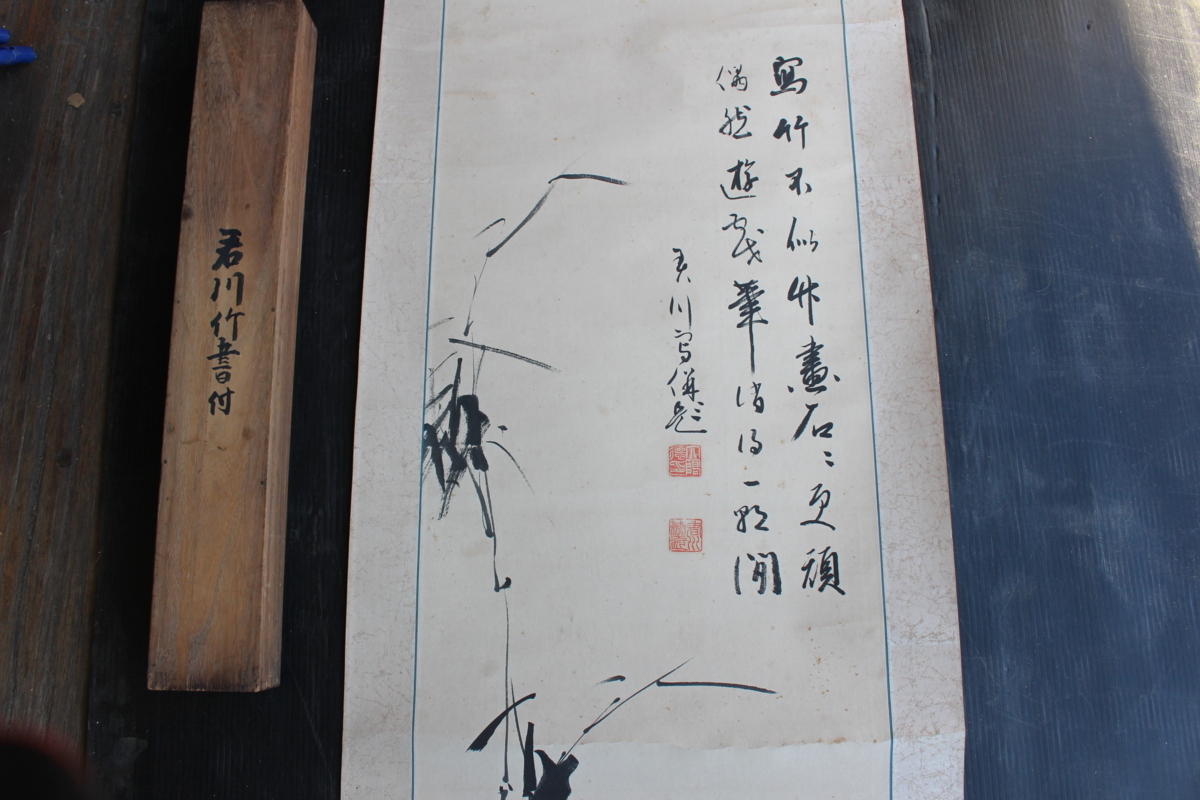 寫竹不似竹畫石〻更頑
偶然遊戯筆消得一朝閒
君川写併題
君川竹書付